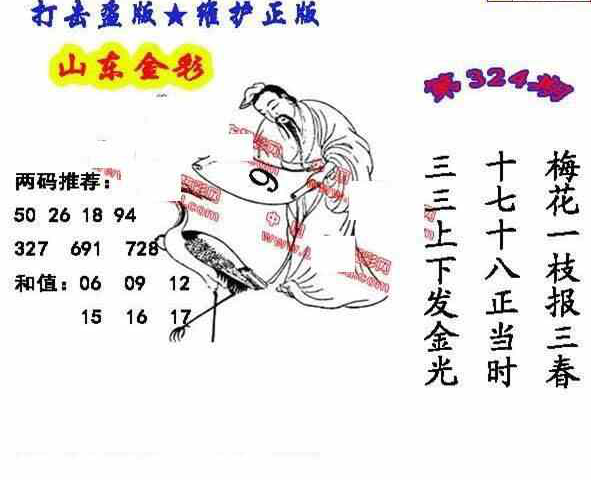 打击盗版★维护正版
山东金彩
第324期
两码推荐：
50 26 18 94
327 691 728
和值：06 09 12
15 16 17
9
梅花一枝报三春
十七十八正当时
三三上下发金光